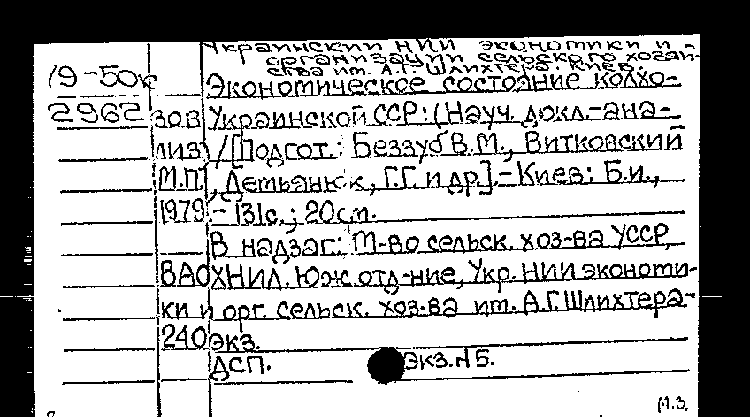 Украинский НИИ экономики и
организации сельского хозяй-
ства им. А.Г. Шлихтера. Киев.
19-50к Экономическое состояние колхо-
2962 зов Украинской ССР: (Науч. докл.-ана-
лиз) / [Подгот.: Беззуб В.М., Витковский
М.П., Демьян к, Г.Г. и др.]. - Киев: Б.и.,
1979 - 131с.; 20см.
В надзаг.: М-во сельск. хоз-ва УССР,
ВАСХНИЛ. Юж. отд-ние, Укр. НИИ экономи-
ки и орг. сельск. хоз-ва им. А.Г. Шлихтера-
240 экз.
ДСП. Экз.N5.
М.З.